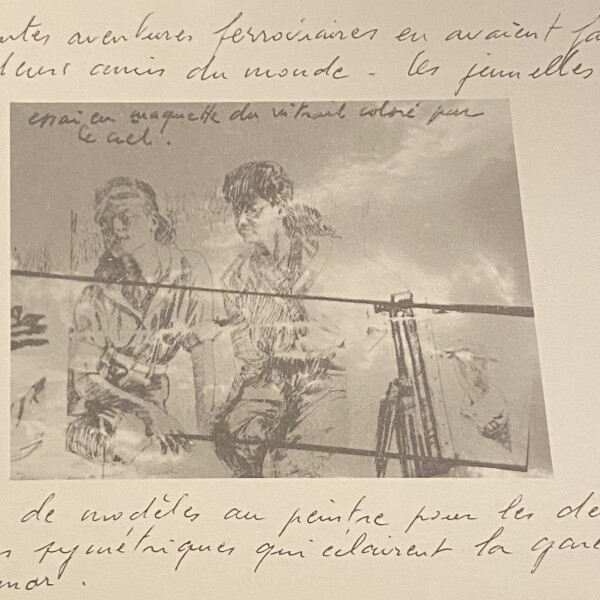 ntes aventures ferroviaires en avaient fa
leurs amis du monde. Les jumelles
essai en maquette du vitrail coloré par
le ciel.
de modèles au peintre pour les de
s symétriques qui éclairent la gare